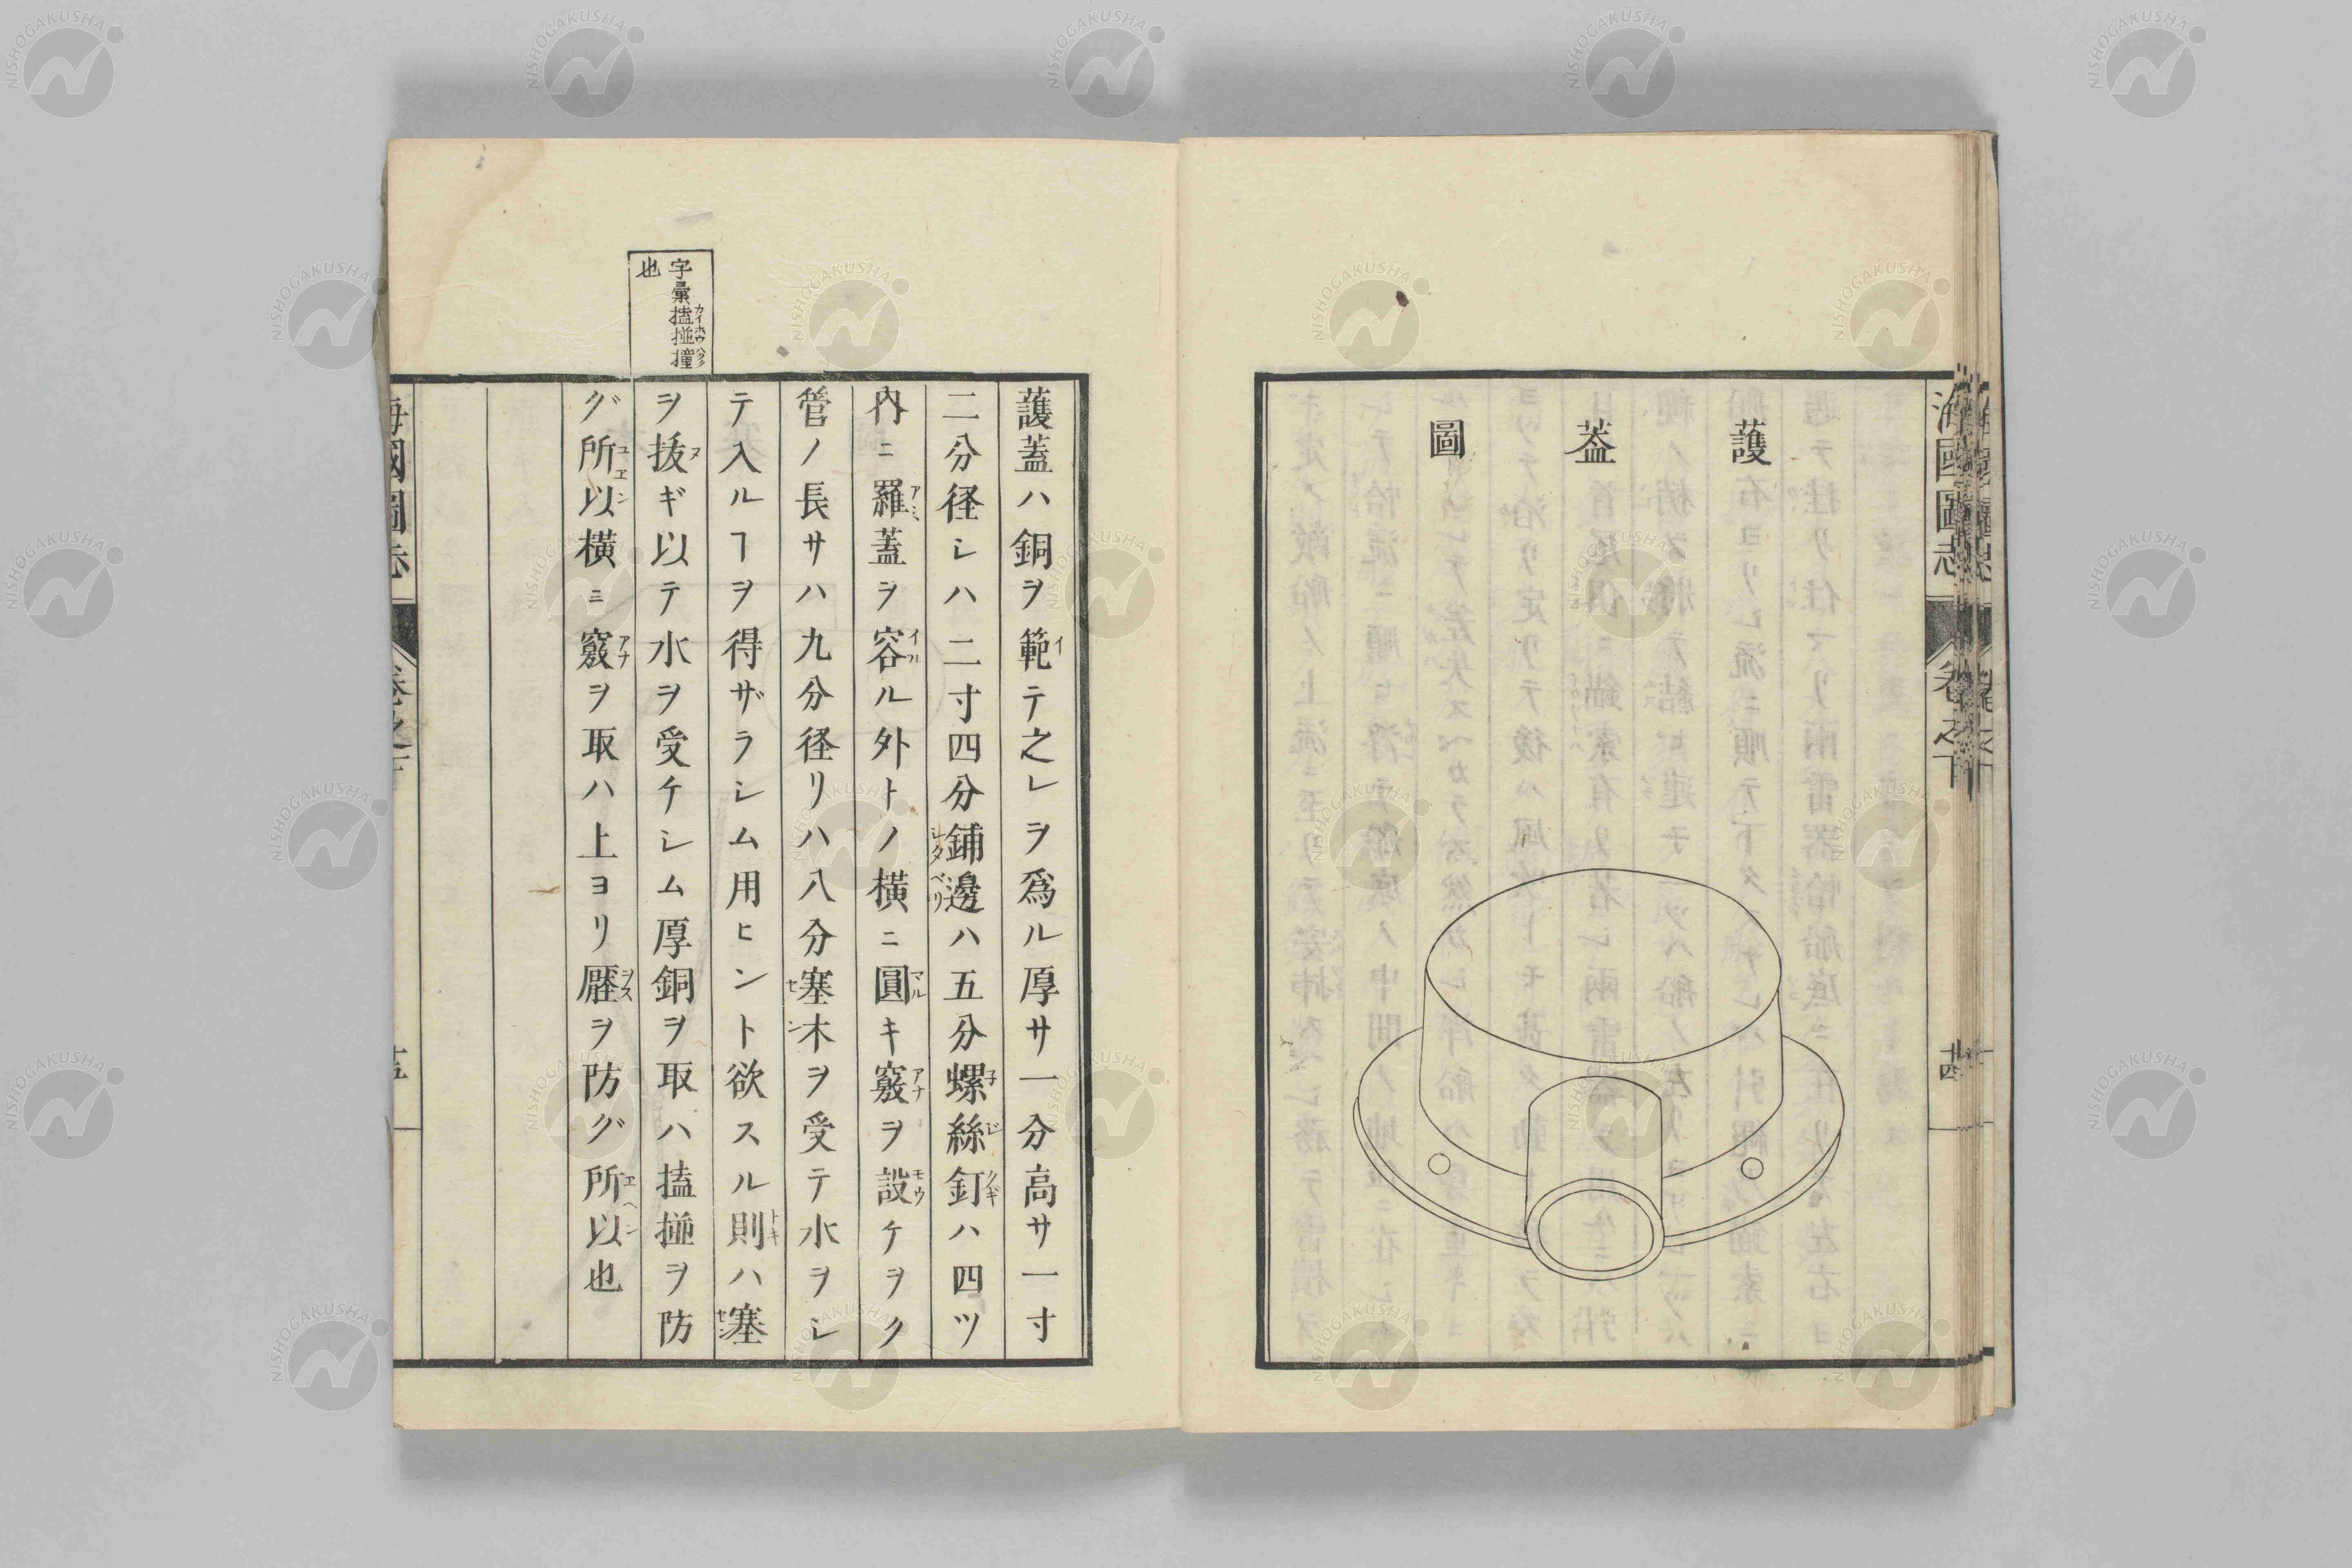 海國圖志 卷之下 十四
護蓋圖
字彙搕掽撞
也
護蓋ハ銅ヲ範テ之レヲ爲ル厚サ一分高サ一寸
二分径シハ二寸四分鋪邊ハ五分螺絲釘ハ四ツ
内ニ羅蓋ヲ容ル外トノ横ニ圓キ竅ヲ設ケヲク
管ノ長サハ九分径リハ八分塞木ヲ受テ水ヲシ
テ入ルヿヲ得ザラシム用ヒント欲スル則ハ塞
ヲ抜ギ以テ水ヲ受ケシム厚銅ヲ取ハ搕掽ヲ防
グ所以横ニ竅ヲ取ハ上ヨリ壓ヲ防グ所以也
海國圖志 卷之下 十五